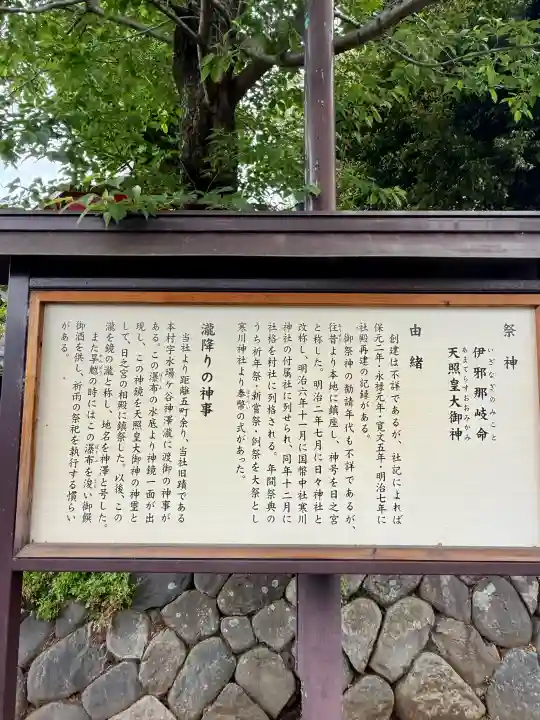 祭神
いざなぎのみこと
伊邪那岐命
あまてらすおおみかみ
天照皇大御神
由緒
創建は不詳であるが、社記によれば
保元二年・永禄元年・寛文五年・明治七年に
社殿再建の記録がある。
御祭神の勧請年代も不詳であるが、
往昔より本地に鎮座し、神号を日之宮
と称した。明治二年七月に日々神社と
改称し、明治六年十一月に国幣中社寒川
神社の付属社に列せられ、同年十二月に
社格を村社に列格される。年間祭典の
うち祈年祭・新嘗祭・例祭を大祭とし
寒川神社より奉幣の式があった。
瀧降りの神事
当社より距離五町余り、当社旧蹟である
本村字水場ケ谷神澤瀧に渡御の神事が
ある。この瀑布の水底より神鏡一面が出
現し、この神鏡を天照皇大御神の神璽と
して、日之宮の相殿に鎮祭した。以後、この
瀧を鏡の瀧と称し、地名を神澤と号した。
また旱魃の時にはこの瀑布を浚い御饌
御酒を供し、祈雨の祭祀を執行する慣らい
がある。